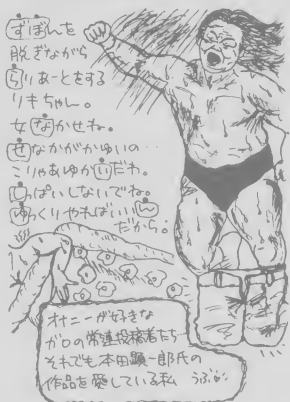 ずぼんを
脱ぎながら
らりあーとをする
リキちゃん。
女なかせね。
せなかがかゆいの…
こりゃあゆかいだわ。
しっぱいしないでね。
ゆっくりやればいいん
だから。
オナニーが好きな
ガロの常連投稿者たち
それでも本田顕一郎氏の
作品を愛している私 うふ